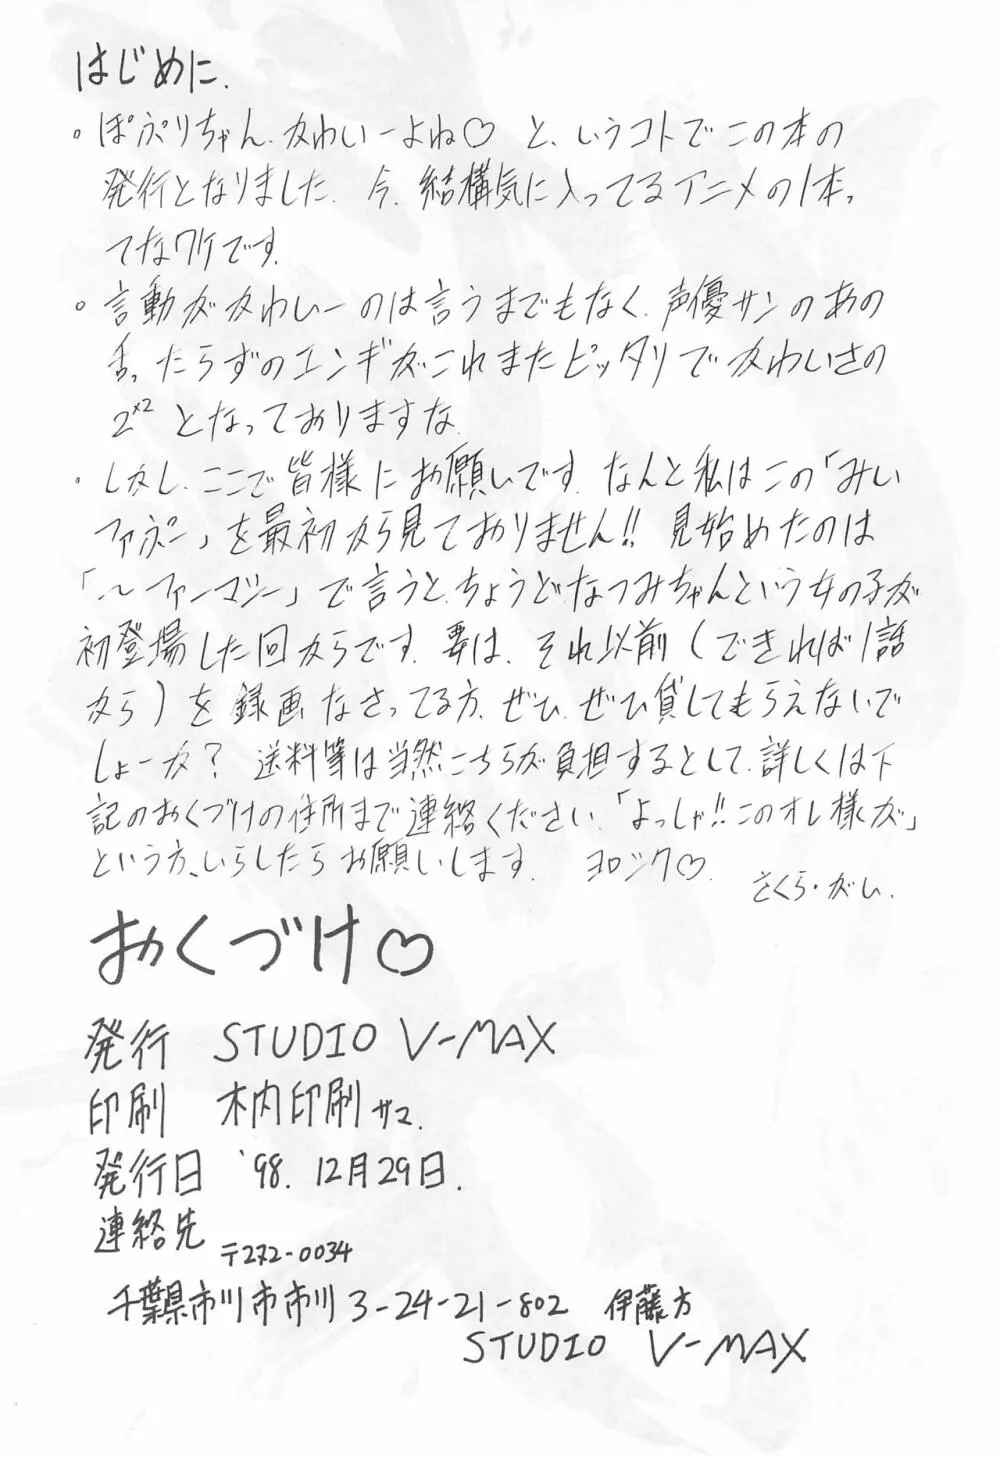 はじめに.
。ぽぷりちゃん、かわいーよね♡ と、いうコトでこの本の
発行となりました. 今、結構気に入ってるアニメの1本っ
てなワケです.
。言動がかわいーのは言うまでもなく、声優サンのあの
舌ったらずのエンギがこれまたピッタリでかわいさの
2ˣ² となっておりますな.
・しかし、ここで皆様にお願いです. なんと私はこの「みい
ファぷー」を最初から見ておりません!! 見始めたのは
「.〜ファーマシー」で言うと、ちょうどなつみちゃんという女の子が
初登場した回からです. 要は、それ以前(できれば1話
から)を録画なさってる方、ぜひ、ぜひ貸してもらえないで
しょーか? 送料等は当然こちらが負担するとして、詳しくは下
記のおくづけの住所まで連絡ください.「よっしゃ!!このオレ様が」
という方、いらしたらお願いします. ヨロシク♡.
さくら・がい.
おくづけ♡
発行 STUDIO V-MAX
印刷 木内印刷サマ.
発行日 '98. 12月29日.
連絡先 〒272-0034
千葉県市川市市川3-24-21-802 伊藤方
STUDIO V-MAX